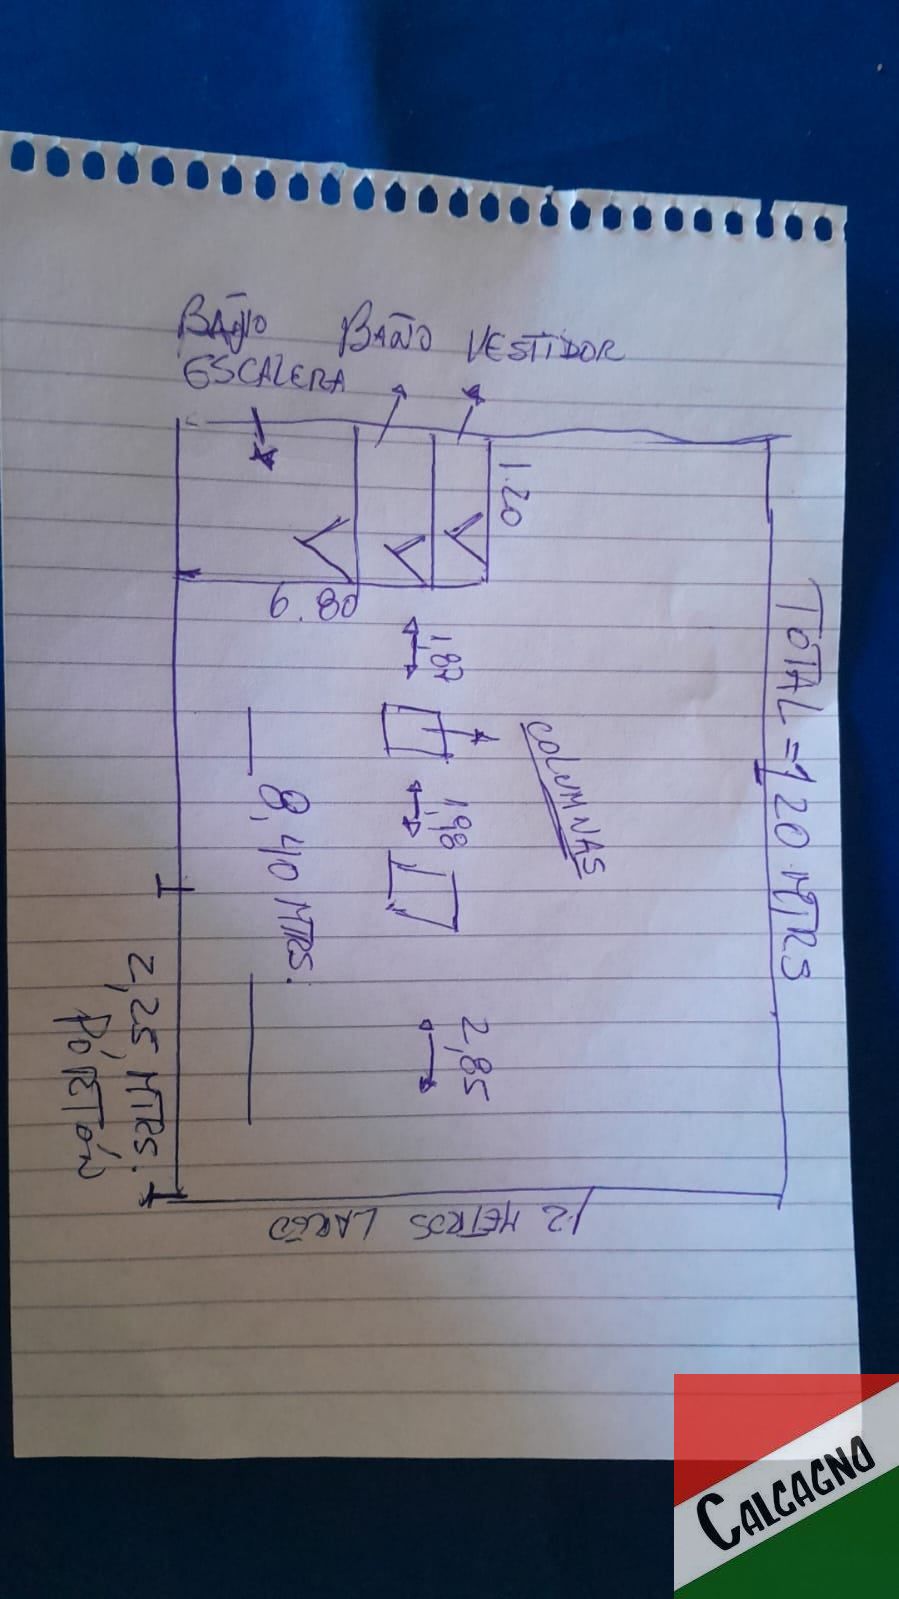 BAJO
ESCALERA
BAÑO
VESTIDOR
1.20
6.80
1,87
COLUMNAS
1,98
8,40 MTRS.
2,85
2,25 MTRS.
PORTÓN
12 METROS LARGO
TOTAL = 120 MTRS
CALCAGNO